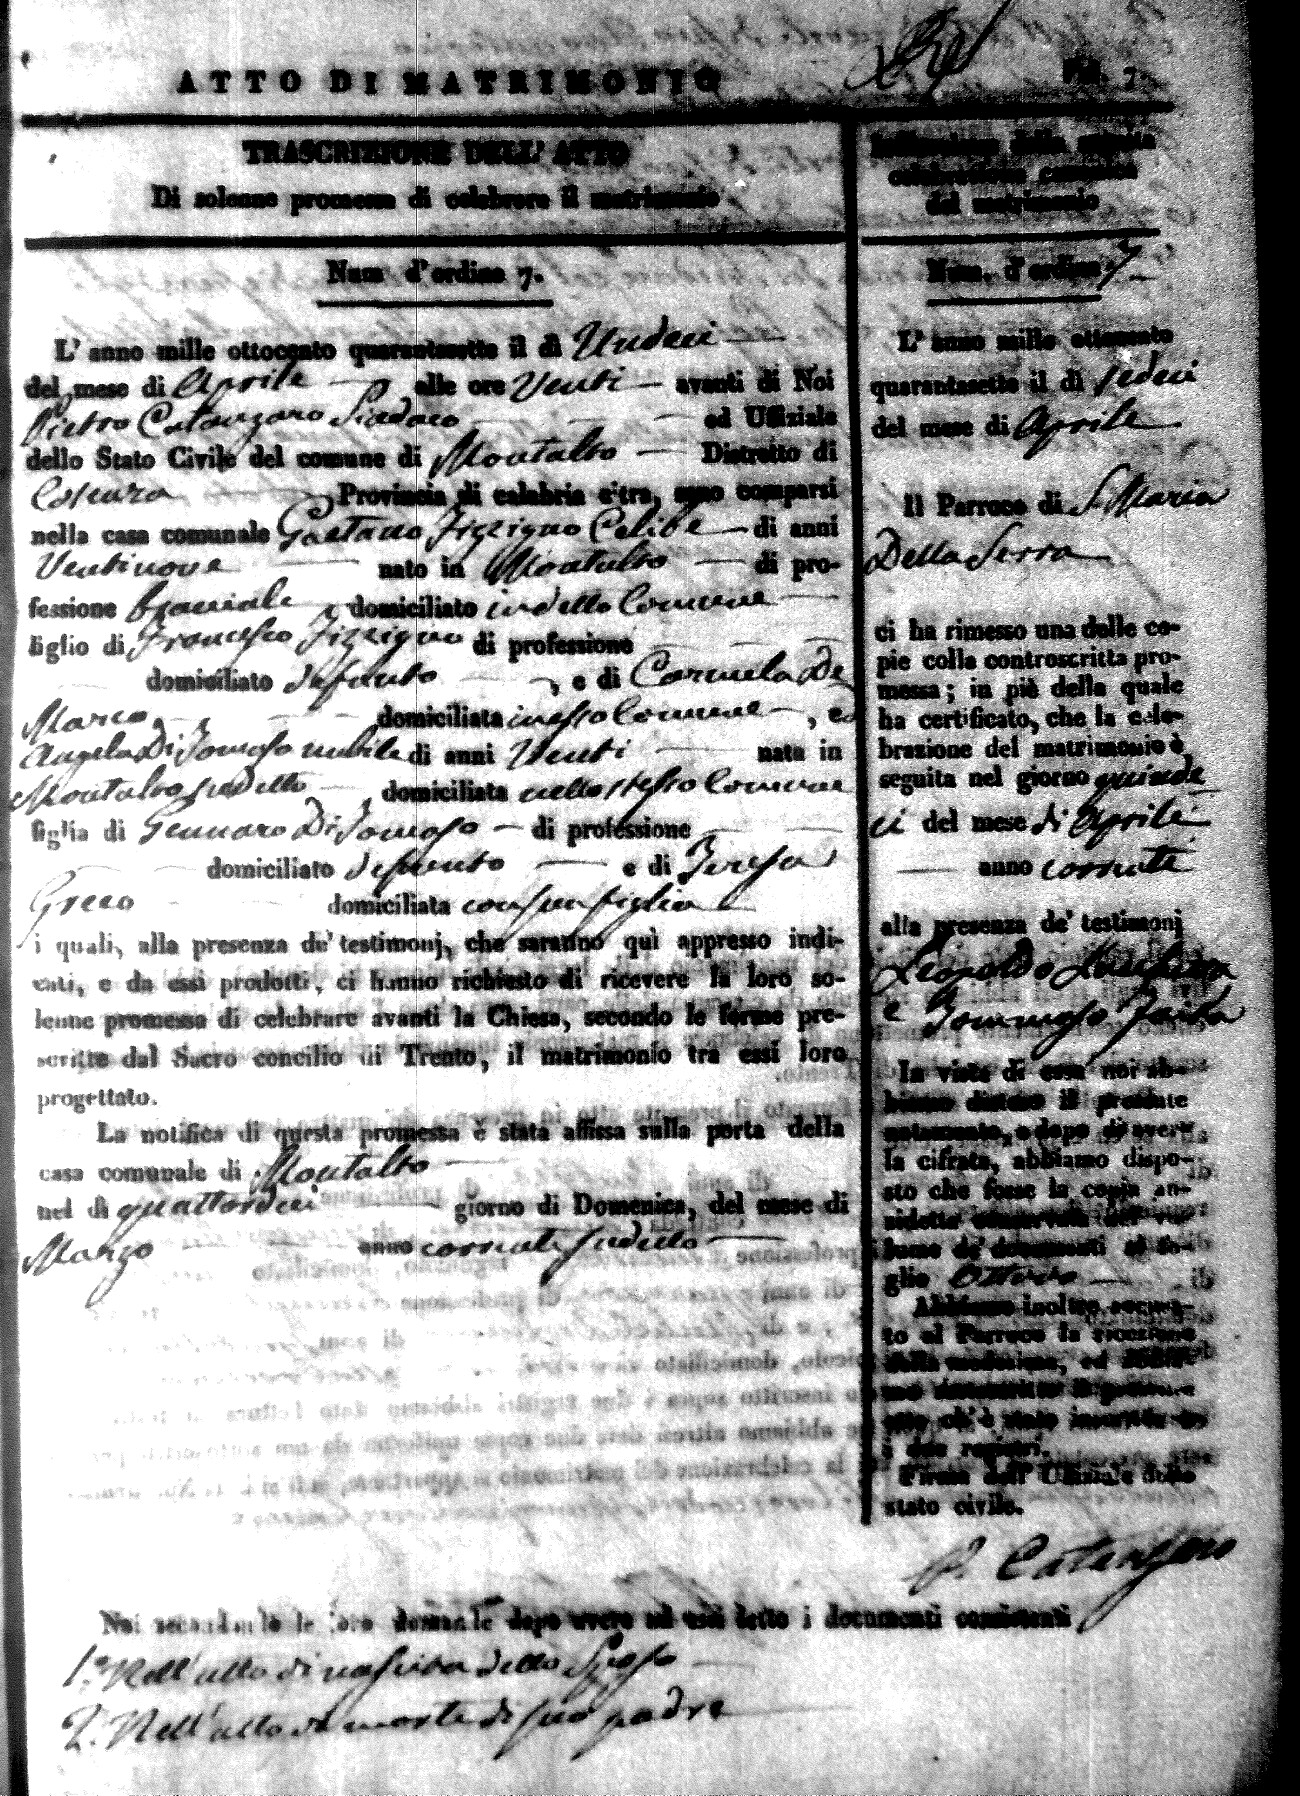 ATTO DI MATRIMONIO
7
TRASCRIZIONE DELL' ATTO
Di solenne promessa di celebrare il matrimonio
Num d'ordine 7.
L' anno mille ottocento quarantasette il dì Undeci
del mese di Aprile alle ore Venti avanti di Noi
Pietro Catanzaro Sindaco ed Uffiziale
dello Stato Civile del comune di Montalto Distretto di
Cosenza Provincia di calabria citra, sono comparsi
nella casa comunale Gaetano Zizzigno Celibe di anni
Ventinove nato in Montalto di pro-
fessione domiciliato in detto Comune
figlio di Francesco Zizzigno di professione
domiciliato defunto , e di Carmela De
Marco domiciliata in esso Comune , ed
Angela Di Tomaso nubile di anni Venti nata in
Montalto sudetto domiciliata nello stesso Comune
figlia di Gennaro Di Tomaso di professione
domiciliato defunto e di Teresa
Greco domiciliata con sua figlia
i quali, alla presenza de' testimonj, che saranno quì appresso indi-
cati, e da essi prodotti, ci hanno richiesto di ricevere la loro so-
lenne promessa di celebrare avanti la Chiesa, secondo le forme pre-
scritte dal Sacro concilio di Trento, il matrimonio tra essi loro
progettato.
La notifica di questa promessa è stata affissa sulla porta della
casa comunale di Montalto
nel dì quattordeci giorno di Domenica, del mese di
Marzo anno corrente sudetto
Indicazione della seguita
celebrazione canonica
del matrimonio
Num. d'ordine 7
L' anno mille ottocento
quarantasette il dì sedeci
del mese di Aprile
Il Parroco di S. Maria
Della Serra
ci ha rimesso una delle co-
pie colla controscritta pro-
messa; in piè della quale
ha certificato, che la cele-
brazione del matrimonio è
seguita nel giorno quinde
ci del mese di Aprile
anno corrente
alla presenza de' testimonj
Leopoldo
e Tommaso Faita
In vista di essa noi ab-
biamo disteso il presente
notamento, e dopo di aver
la cifrata, abbiamo dispo-
sto che fosse la copia an-
zidetta conservata nel vo-
lume de' documenti al fo-
glio Ottavo
Abbiamo inoltre accusa-
to al Parroco la ricezione
della medesima, ed abbia-
mo sottoscritto il presente
atto ch' è stato inscritto su
i due registri.
Firma dell' Uffiziale dello
stato civile.
P. Catanzaro
Noi secondando le loro domande dopo avere ad essi letto i documenti consistenti
1.° Nell'atto di nascita dello Sposo
2.° Nell'atto di morte di suo padre